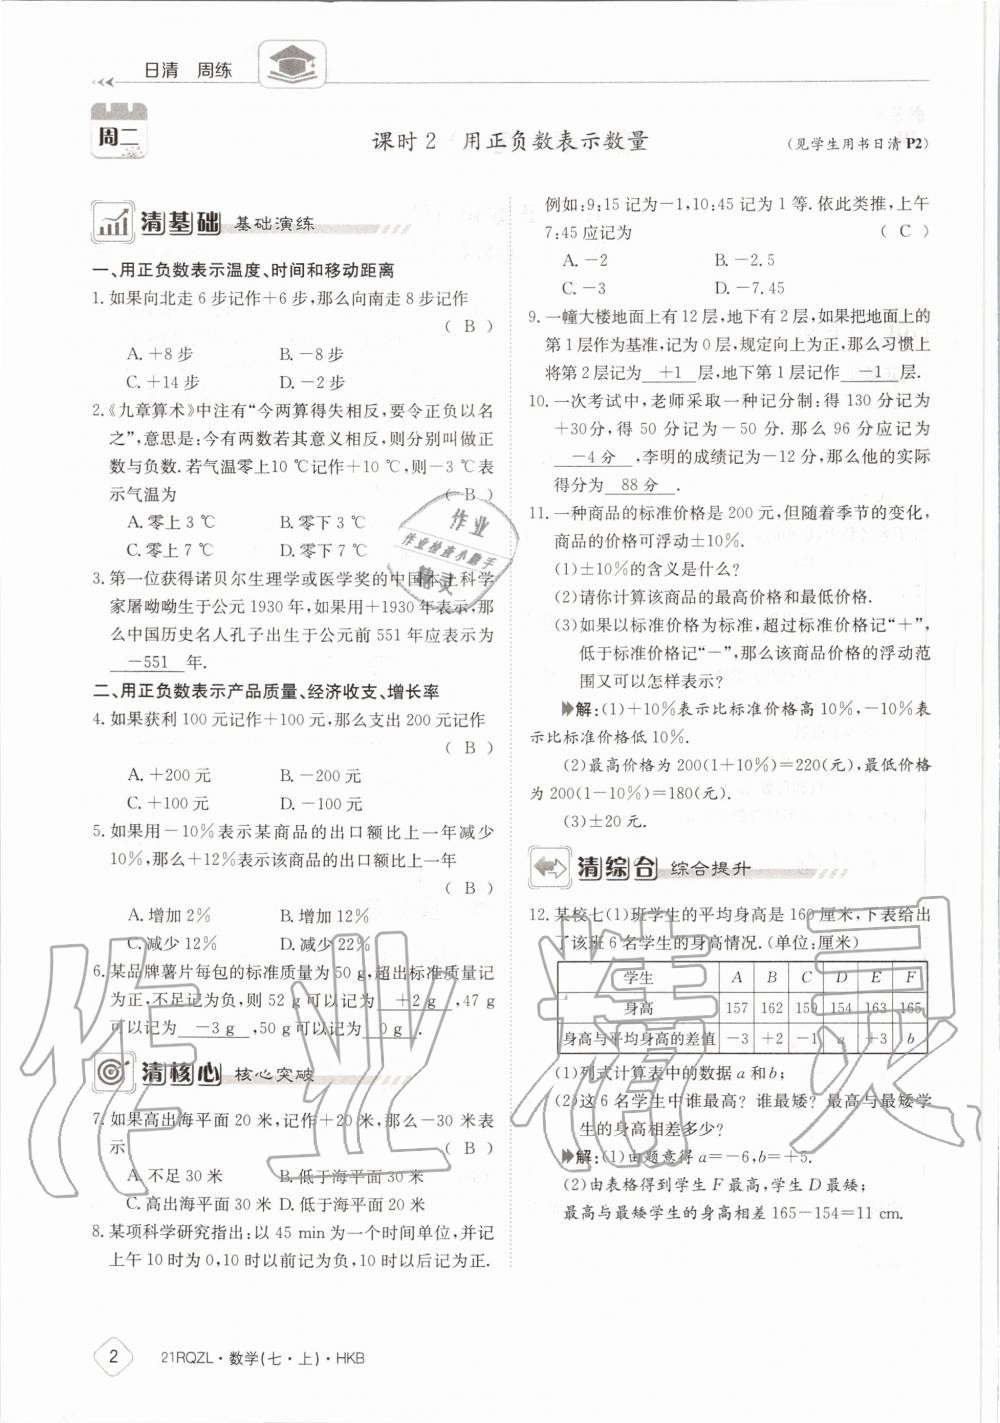 日清 周练
周二
课时2 用正负数表示数量
(见学生用书日清P2)
清基础 基础演练
一、用正负数表示温度、时间和移动距离
1.如果向北走6步记作+6步,那么向南走8步记作
( B )
A.+8步 B.-8步
C.+14步 D.-2步
2.《九章算术》中注有“今两算得失相反,要令正负以名
之”,意思是:今有两数若其意义相反,则分别叫做正
数与负数.若气温零上10 ℃记作+10 ℃,则-3 ℃表
示气温为 ( B )
A.零上3 ℃ B.零下3 ℃
C.零上7 ℃ D.零下7 ℃
3.第一位获得诺贝尔生理学或医学奖的中国本土科学
家屠呦呦生于公元1930年,如果用+1930年表示,那
么中国历史名人孔子出生于公元前551年应表示为
-551 年.
二、用正负数表示产品质量、经济收支、增长率
4.如果获利100元记作+100元,那么支出200元记作
( B )
A.+200元 B.-200元
C.+100元 D.-100元
5.如果用-10%表示某商品的出口额比上一年减少
10%,那么+12%表示该商品的出口额比上一年
( B )
A.增加2% B.增加12%
C.减少12% D.减少22%
6.某品牌薯片每包的标准质量为50 g,超出标准质量记
为正,不足记为负,则52 g可以记为 +2 g ,47 g
可以记为 -3 g ,50 g可以记为 0 g .
清核心 核心突破
7.如果高出海平面20米,记作+20米,那么-30米表
示 ( B )
A.不足30米 B.低于海平面30米
C.高出海平面30米 D.低于海平面20米
8.某项科学研究指出:以45 min为一个时间单位,并记
上午10时为0,10时以前记为负,10时以后记为正.
例如:9:15记为-1,10:45记为1等.依此类推,上午
7:45应记为 ( C )
A.-2 B.-2.5
C.-3 D.-7.45
9.一幢大楼地面上有12层,地下有2层,如果把地面上的
第1层作为基准,记为0层,规定向上为正,那么习惯上
将第2层记为 +1 层,地下第1层记作 -1 层.
10.一次考试中,老师采取一种记分制:得130分记为
+30分,得50分记为-50分.那么96分应记为
-4分 ,李明的成绩记为-12分,那么他的实际
得分为 88分 .
11.一种商品的标准价格是200元,但随着季节的变化,
商品的价格可浮动±10%.
(1)±10%的含义是什么?
(2)请你计算该商品的最高价格和最低价格.
(3)如果以标准价格为标准,超过标准价格记“+”,
低于标准价格记“-”,那么该商品价格的浮动范
围又可以怎样表示?
解:(1)+10%表示比标准价格高10%,-10%表
示比标准价格低10%.
(2)最高价格为200(1+10%)=220(元),最低价格
为200(1-10%)=180(元).
(3)±20元.
清综合 综合提升
12.某校七(1)班学生的平均身高是160厘米,下表给出
了该班6名学生的身高情况.(单位:厘米)
学生 A B C D E F
身高 157 162 159 154 163 165
身高与平均身高的差值 -3 +2 -1 a +3 b
(1)列式计算表中的数据a和b;
(2)这6名学生中谁最高?谁最矮?最高与最矮学
生的身高相差多少?
解:(1)由题意得a=-6,b=+5.
(2)由表格得到学生F最高,学生D最矮;
最高与最矮学生的身高相差165-154=11 cm.
作业
作业检查小助手
精灵
作业精灵
2 21RQZL·数学(七·上)·HKB